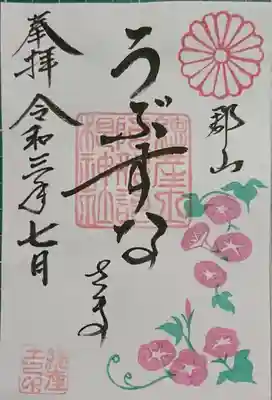 郡山
うぶすな
さま
奉拝
令和三年七月